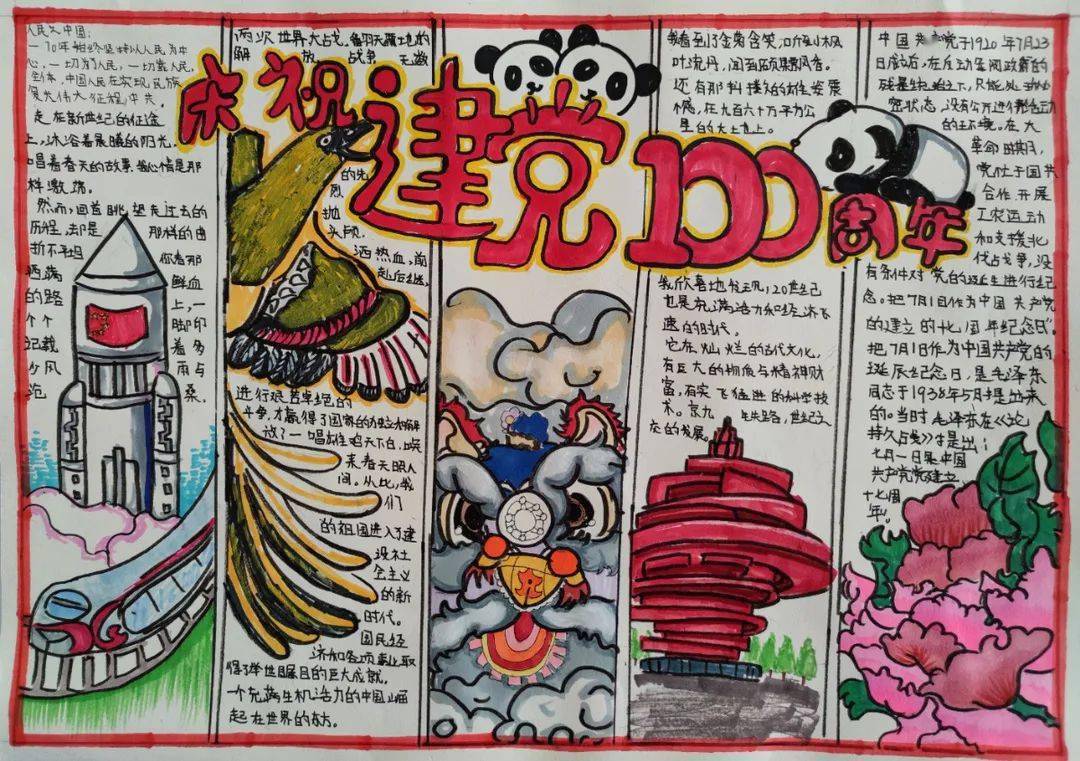 庆祝建党100周年
人民大中国:
一70年始终坚持以人民为中
心,一切为了人民,一切靠人民,
全体,中国人民在实现民族
复兴伟大征程中共
走在新世纪的征途
上,沐浴着晨曦的阳光,
唱着春天的故事,我心情是那
样激端。
然而,回首眺望走过去的
历程,却是那样的曲
折不平坦你看那
洒端鲜血
的路上,一
个个脚印
记载着多
少风雨与
沧桑。
两次世界大战,翻天覆地的
解放战争无数
的先
烈
抛
头颅,
洒热血,前
赴后继,
进行艰苦卓绝的
斗争,才赢得了国家的力度立和解
放了一唱雄鸡天下白,唤
来春天照人
间。从此,我
们
的祖国进入了建
设社
会主义
的新
时代。
国民经
济和各项事业取
得了举世瞩目的巨大成就。
一个充满生机活力的中国山崛
起在世界的东方。
我看到了金菊含笑,
叶流丹,
还有那抖擞的雄姿震
撼,在九百六十万平方公
里的大土地上。
我欣喜地发现,20世纪
也是充满活力和经济飞
速的时代。
它在灿烂的古代文化,
有巨大的物质与精神财
富,有突飞猛进的科学技
术。京九铁路,世纪之
在的发展。
中国共产党于1920年7月23
日成立后,在反动军阀政府的
残暴统治之下,只能处于秘
密状态,没有公开进行活动
的环境。在大
革命时期,
党忙于国共
合作、开展
工农运动
和支援北
伐占戈争,没
有条件对党的诞生进行纪
念。把7月1日作为中国共产党
的建立的十七周年纪念日"。
把7月1日作为中国共产党的
诞辰纪念日,是毛泽东
同志于1938年5月提出来
的。当时毛泽东在《论
持久战》提出:
七月一日是中国
共产党建立
十七周
年。